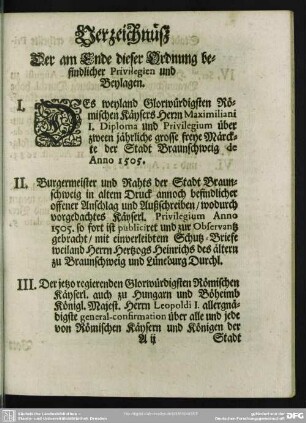 Verzeichnüß
Der am Ende dieser Ordnung be-
findlicher Privilegien und
Beylagen.
I. DEs weyland Glorwürdigsten Rö-
mischen Käysers Herrn Maximiliani
I. Diploma und Privilegium über
zween jährliche grosse freye Märck-
te der Stadt Braunschweig de
Anno 1505.
II. Burgermeister und Rahts der Stadt Braun-
schweig in altem Druck annoch befindlicher
offener Anschlag und Außschreiben / wodurch
vorgedachtes Käyserl. Privilegium Anno
1505. so fort ist publiciret und zur Observantz
gebracht / mit einverleibtem Schutz-Briefe
weiland Herrn Hertzogs Heinrichs des ältern
zu Braunschweig und Lüneburg Durchl.
III. Der jetzo regierenden Glorwürdigsten Römischen
Käyserl. auch zu Hungarn und Böheimb
Königl. Majest. Herrn Leopoldi I. allergnä-
digste general-confirmation über alle und jede
von Römischen Käysern und Königen der
A ij Stadt